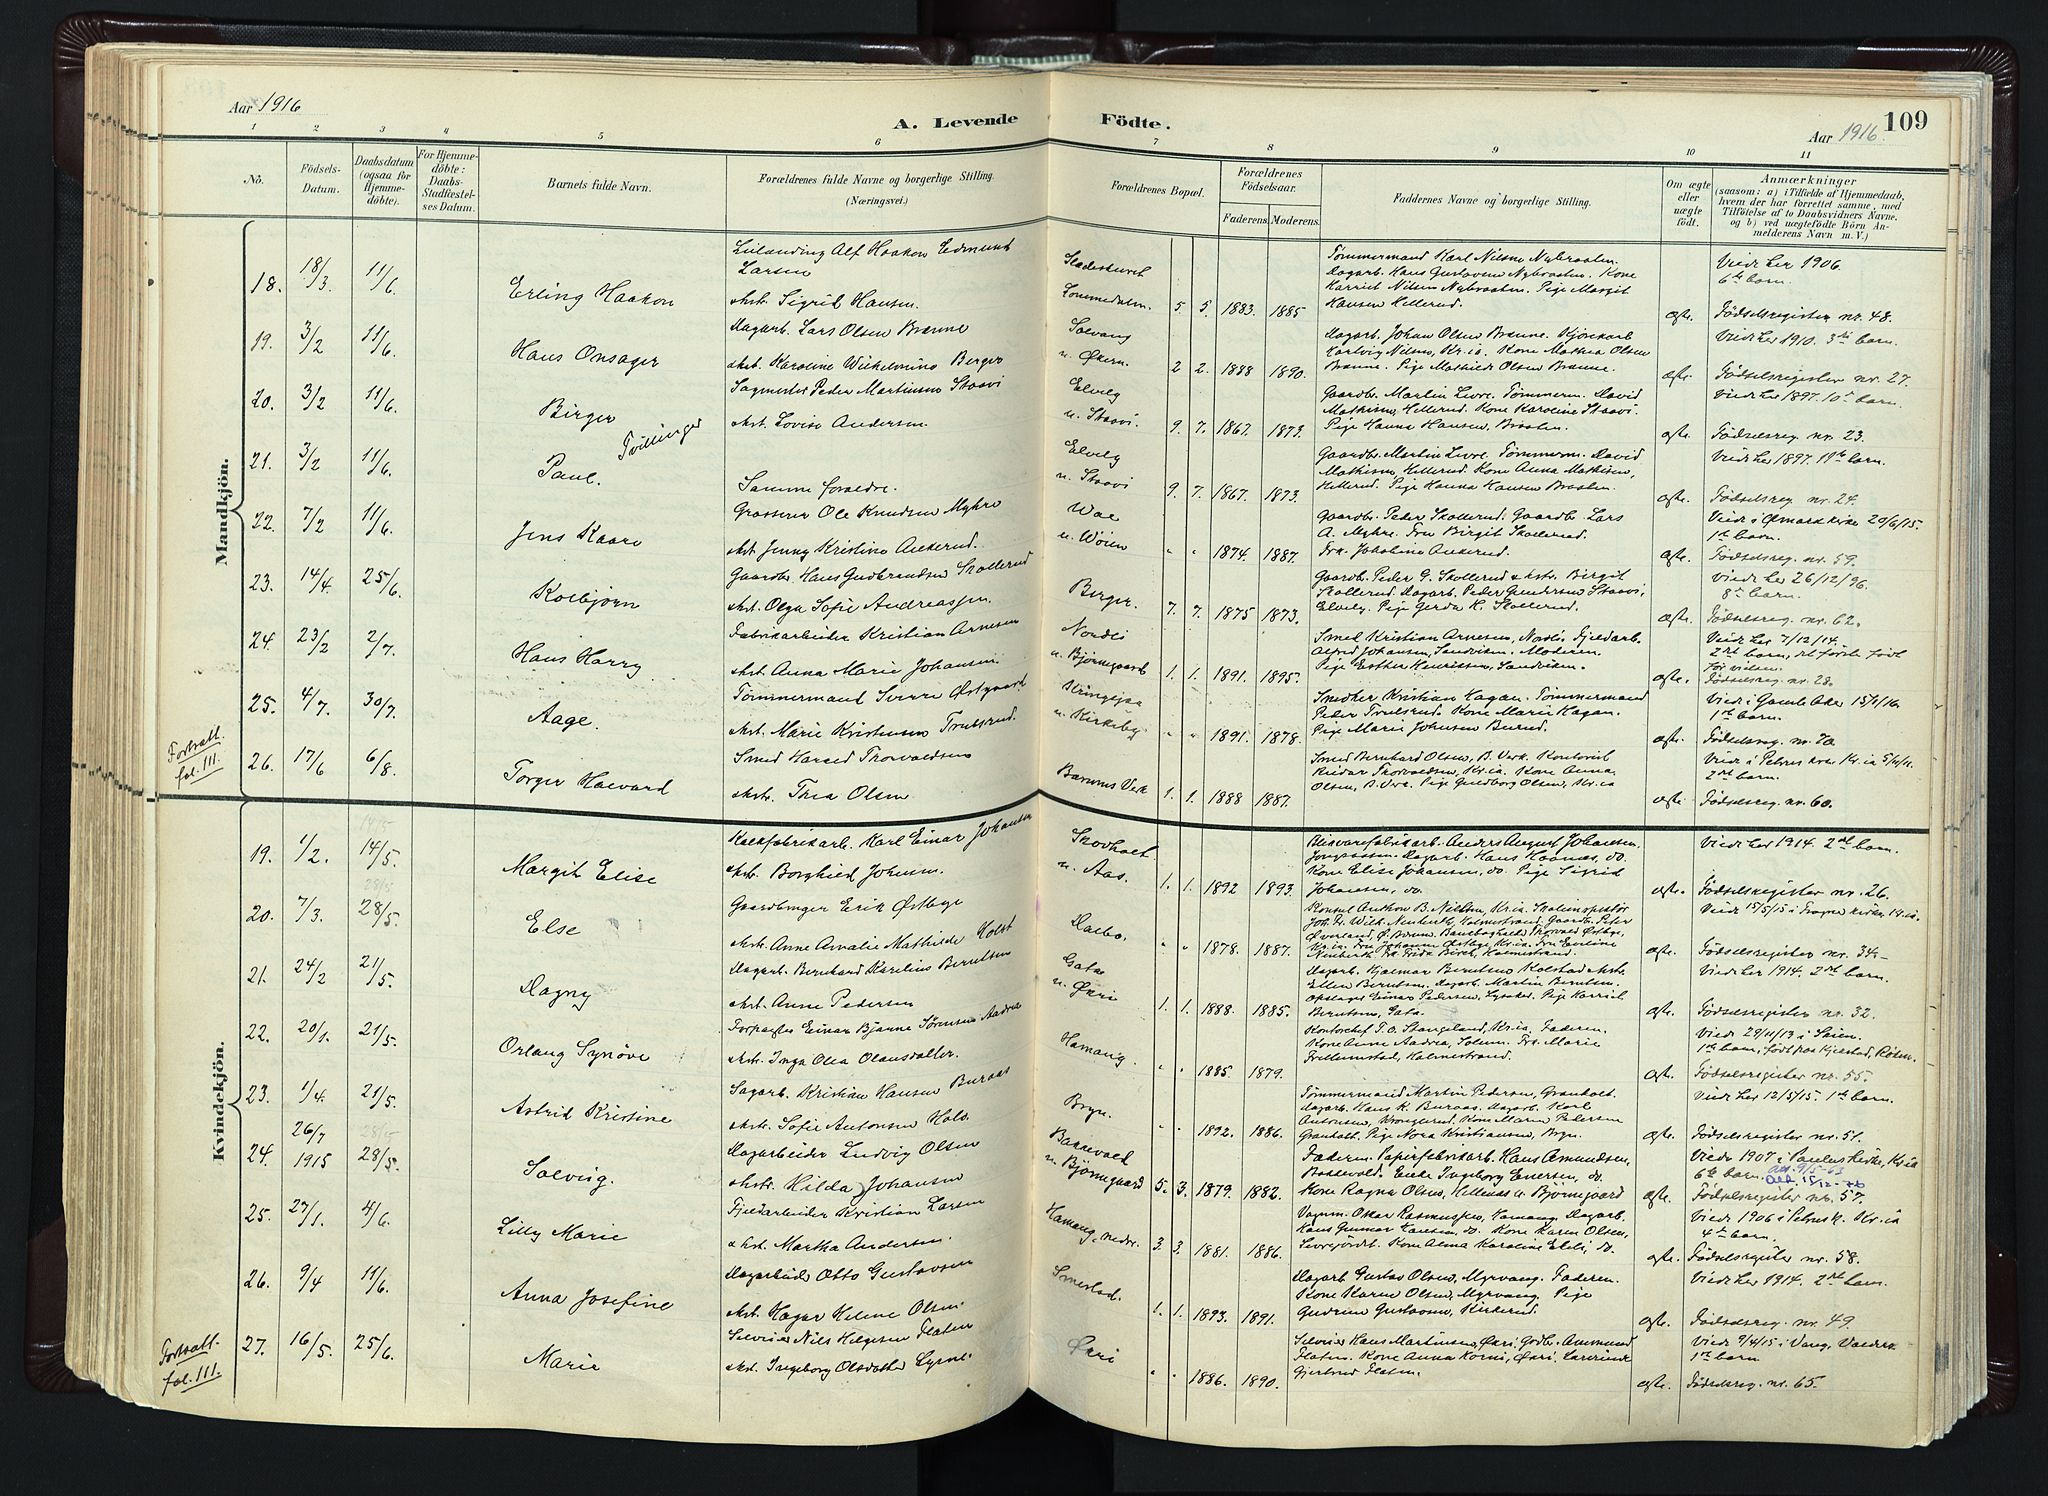 Aar 1916
A. Levende Födte.
109
Aar 1916.
1 2 3 4 5 6 7 8 9 10 11
No.
Födsels-Datum.
Daabsdatum (ogsaa for Hjemmedöbte).
For Hjemmedöbte: Daabs-Stadfestelses Datum.
Barnets fulde Navn.
Forældrenes fulde Navne og borgerlige Stilling. (Næringsvei.)
Forældrenes Bopæl.
Forældrenes Födselsaar.
Faderens. Moderens.
Faddernes Navne og borgerlige Stilling.
Om ægte eller uægte födt.
Anmærkninger
(saasom: a) i Tilfælde af Hjemmedaab, hvem der har forrettet samme, med Tilföielse af to Daabsvidners Navne. og b) ved uægtefödte Börn Anmelderens Navn m. V.)
Mandkjön.
18. 18/3 11/6. Erling Haakon
Alf Haakon Edmund Larsen
Sigrid Hansen.
Lommedalen. 5 5. 1883. 1885
Tømmermand Karl Nilsen Nybraaten.
Dagarb. Hans Gustavsen Nybraaten. Kone
Nilsen Nybraaten. Pige Margit
Hansen Hellerud.
ægte. Viede her 1906. 6te barn. Fødselsregister nr. 48.
19. 3/2 11/6. Hans Onsager
Dagarb. Lars Olsen Brenne
Karoline Wilhelmine Berger
Solvang u. Økern. 2 2. 1888 1890.
Dagarb. Johan Olsen Brenne.
Nilsen, Kr.ia. Kone Mathea Olsen
Brenne. Pige Mathilde Olsen Brenne.
ægte. Viede her 1910. 3die barn. Fødselsregister nr. 27.
20. 3/2 11/6. Birger Tvillinger
Sagmester Peder Martinsen Staavi
Lovise Andersen.
Elvely u. Staavi. 9. 7. 1867. 1873.
Gaardbr. Martin Livre. Tømmerm. David
Mathisen, Hellerud. Kone Karoline Staavi.
Pige Hanna Hansen, Braaten.
ægte. Viede her 1897. 10de barn. Fødselsreg. nr. 23.
21. 3/2 11/6. Paul.
Samme forældre.
Elvely u. Staavi 9. 7. 1867. 1873.
Gaardbr. Martin Livre. Tømmerm. David
Mathisen, Hellerud. Kone Anna Mathisen,
Hellerud. Pige Hanna Hansen Braaten.
ægte. Viede her 1897. 11te barn. Fødselsreg. nr. 24.
22. 7/2 11/6. Jens Kaare
Grosserer Ole Knudsen Myhre
Jenny Kristine Ankerud.
u. Wøien " " 1874 1887.
Gaardbr. Peder Skollerud. Gaardbr. Lars
A. Myhre. Fru Birgit Skollerud.
Frk. Ankerud.
ægte. Viede i Ømark kirke 20/6/15. 1ste barn. Fødselsreg. nr. 59.
23. 14/4. 25/6. Kolbjørn
Gaardbr. Hans Gudbrandsen Skollerud
Olga Sofie Andreassen.
Berger. 7. 7. 1875 1873.
Gaardbr. Peder G. Skollerud & Birgit
Skollerud. Dagarb. Peder Gundersen Staavi,
Elvely. Pige Gerda K. Skollerud.
ægte. Viede her 26/12/96. 8de barn. Fødselsreg. nr. 62.
24. 23/2 2/7. Hans Harry
Fabrikarbeider Kristian Arnesen
Anna Marie Johansen.
Nordli u. Bjørnegaard 1. 1. 1891. 1895.
Smed Kristian Arnesen, Nordli. Fjeldarb.
Alfred Johansen, Sandviken. Moderen.
Pige Esther Henriksen, Sandviken.
ægte. Viede her 7/12/14. 2det barn, det første født før vielsen. Fødselsreg. nr. 28.
25. 4/7. 30/7. Aage.
Tømmermand Sverre Østgaard
Marie Kristensen Trulsrud.
Kringsjaa u. Kirkeby " " 1891. 1878.
Snedker Kristian Hagan. Tømmermand
Peder Trulsrud. Kone Marie Hagan.
Pige Marie Johnsen Burud.
ægte. Viede i Gamle Aker 15/1/16. 1ste barn. Fødselsreg. nr. 70.
Fortsatt fol. 111.
26. 17/6 6/8. Torger Haavard
Smed Harald Thorvaldsen
Thea Olsen.
Bærums Verk 1. 1. 1888 1887.
Smed Bernhard Olsen, B. Verk. Kontorist
Reidar Thorvaldsen, Kr.ia. Kone Anna
Olsen, B. Verk. Pige Gundborg Olsen, Kr.ia
ægte. Viede i Petrus kirke Kr.ia. 2det barn. Fødselsreg. nr. 60.
Kvindekjön.
19. 1/2. 14/5. Margit Elise
Kalkfabrikarb. Karl Einar Johansen
Borghild Johnsen.
Skovholt u. Aas. 1. 1. 1892 1893.
Anders August Johansen.
Dagarb. Hans Haanes, do.
Kone Elise Johansen, do. Pige Sigrid
Johansen, do.
ægte. Viede her 1914. 2det barn. Fødselsregister nr. 26.
20. 7/3. 28/5. Else
Gaardbruger Erik Østbye
Anne Amalie Mathilde Holst
Dalbo. " " 1878. 1887.
Konsul B. Nielsen, Kr.ia.
ægte. Viede 15/5/15 i Frogner kirke, Kr.ia. Fødselsregister nr. 34.
21. 24/2 21/5. Dagny
Dagarb. Bernhard Karelius Berntsen
Anne Pedersen
Gata u. Økri 1. 1. 1888. 1885.
Dagarb. Hjalmar Berntsen Kolstad
Ellen Berntsen, Dagarb. Martin Berntsen.
Opslager Einar Pedersen, Lysaker. Pige
Berntsen, Gata.
ægte. Viede her 1914. 2det barn. Fødselsregister nr. 32.
22. 20/1. 21/5. Orlaug Synøve
Forpagter Einar Bjarne Sørensen Aadnes
Inga Olea Olausdatter.
Hamang. " " 1885. 1879.
Kontorchef T. O. Stangeland, Kr.ia. Faderen.
Kone Anne Aadnes, Solum. Frk. Marie
Holmestrand.
ægte. Viede 29/11/13 i Skien. 1ste barn, født paa Kjelstad, Røken. Fødselsregister nr. 55.
23. 1/4. 21/5. Astrid Kristine
Sagarb. Kristian Hansen Buraas
Sofie Antonsen Hols.
Bryn. " " 1892. 1886.
Tømmermand Martin Pedersen, Granholt.
Dagarb. Hans K. Buraas. Dagarb. Karl
Antonsen, Krongerud. Kone Maren Pedersen
Granholt. Pige Nora Kristiansen, Bryn.
ægte. Viede her 12/5/15. 1ste barn. Fødselsregister nr. 51.
24. 26/7 1915 28/5. Solveig.
Dagarbeider Ludvig Olsen
Hilda Johansen
Bakkevold u. Bjørnegaard 5. 3. 1879. 1882.
Faderen. Papirfabrikarb. Hans Amundsen,
Bakkevold. Enke Ingeborg Evensen, do.
Kone Ragna Olsen, Hellenes u. Bjørnegaard
ægte. Viede 1907 i Paulus kirke, Kr.ia 6te barn. Att. 9/5-63 Fødselsregister nr. 57.
25. 27/1. 4/6. Lilly Marie
Fjeldarbeider Kristian Larsen
Martha Andersen.
Hamang, nedre. 3. 3. 1881. 1886.
Vognm. Oskar Rasmussen, Hamang. Dagarb.
Hans Gunnar Larsen, do. Kone Karen Olsen,
Kone Alma Karoline do.
ægte. Viede 1906 i Petrusk. Kr.ia 4de barn. Fødselsregister nr. 58.
26. 9/4 11/6. Anna Josefine
Dagarbeider Otto Gustavsen
Hagar Helene Olsen.
Smestad. 1. 1. 1893. 1891.
Dagarb. Gustav Olsen, Myrvang. Faderen.
Kone Karen Olsen, Myrvang. Pige
Gudrun Gustavsen, Kirkerud.
ægte. Viede her 1914. 2det barn. Fødselsreg. nr. 49.
Fortsatt fol. 111.
27. 16/5. 25/6. Marie
Selveier Nils Helgesen Flaten
Ingeborg Olsdatter
Økri " " 1886. 1890.
Selveier Hans Martinsen, Økri. Gdbr. Ammund
Flaten. Kone Anna Korni, Økri.
Gjertrud Flaten.
ægte. Viede 9/4/15 i Vang, Valdres. 1ste barn. Fødselsreg. nr. 65.